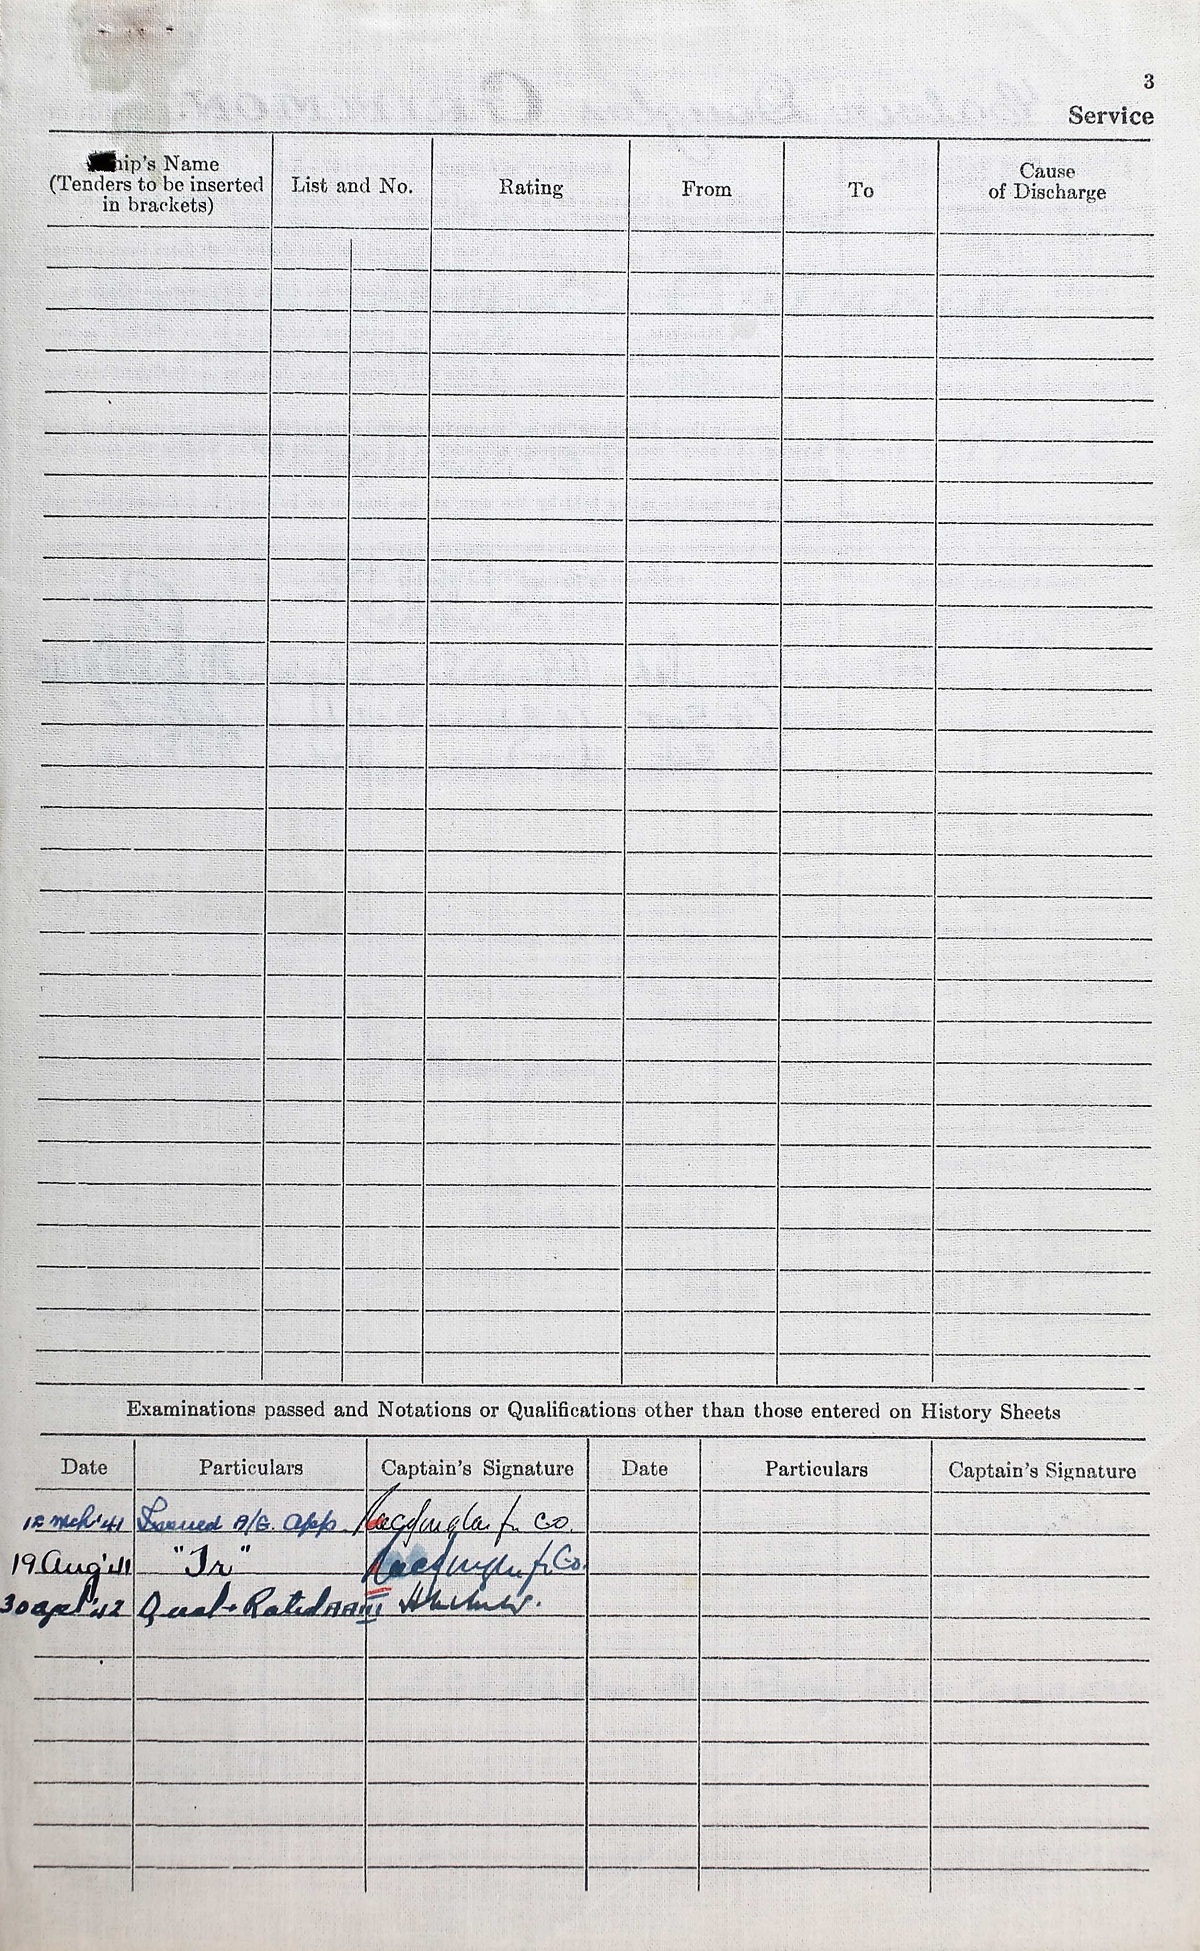 3
Service
hip's Name
(Tenders to be inserted
in brackets)
List and No.
Rating
From
To
Cause
of Discharge
Examinations passed and Notations or Qualifications other than those entered on History Sheets
Date
Particulars
Captain's Signature
Date
Particulars
Captain's Signature
Mch '41 Issued A/G. app. for Co.
19 Aug '41 "Tr" for Co.
30 Apl '42 Qual + Rated AA III